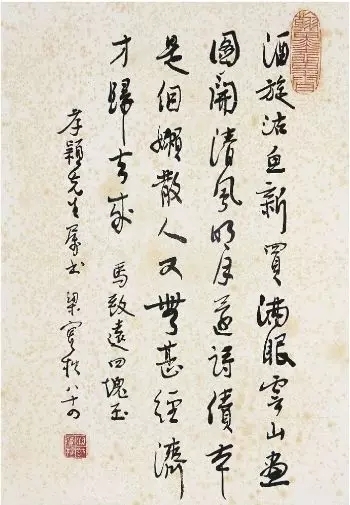 酒旋沽魚新買滿眼雲山畫
圖開清風明月還詩債本
是個嬾散人又無甚經濟
才歸去 馬致遠四塊玉
孝穎先生屬書 梁實秋八十四